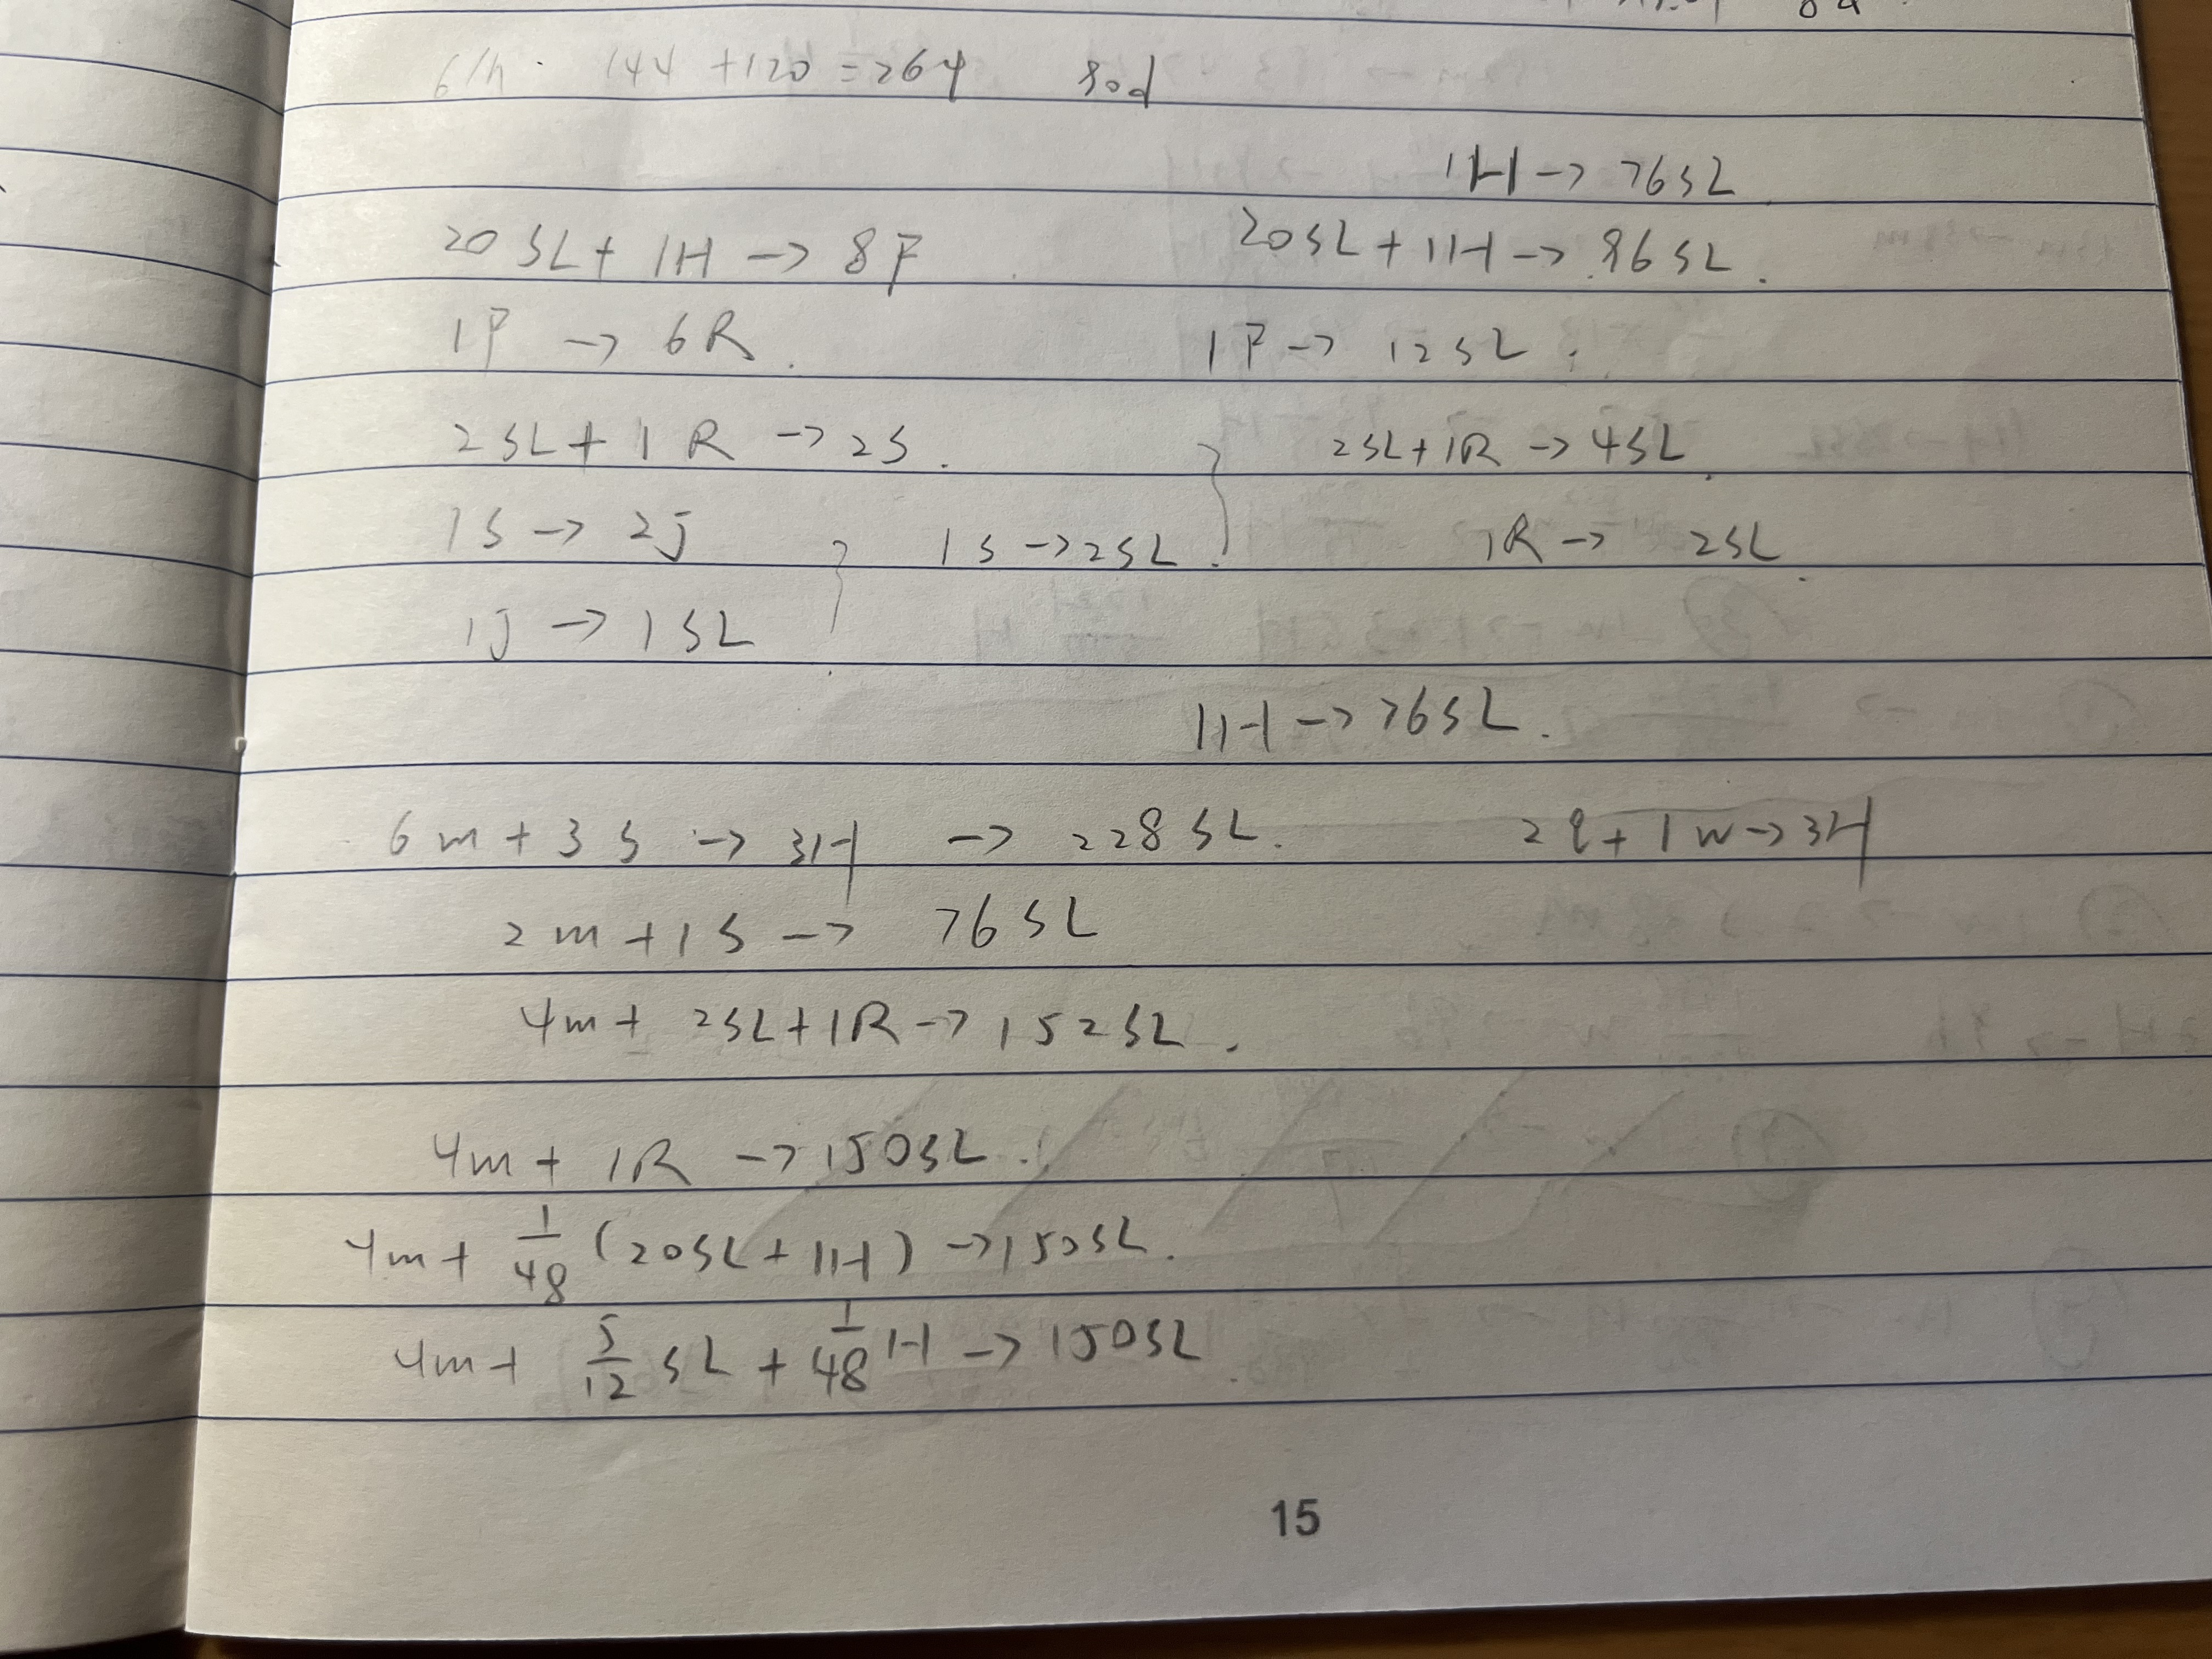 6/h . 144 + 120 = 264 80d
1H → 76SL
20SL + 1H → 8F 20SL + 1H → 96SL.
1F → 6R. 1F → 12SL.
2SL + 1R → 2S. 2SL + 1R → 4SL.
1S → 2J 1S → 2SL. 1R → 2SL.
1J → 1SL
1H → 76SL.
6m + 3S → 3H → 228SL. 2l + 1W → 3H
2m + 1S → 76SL
4m + 2SL + 1R → 152SL.
4m + 1R → 150SL.
4m + 1/48 (20SL + 1H) → 150SL.
4m + 5/12 SL + 1/48 H → 150SL.
15